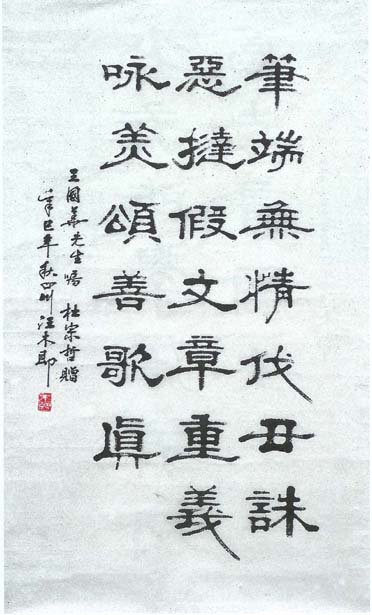 筆端無情伐丑誅
惡撻假文章重義
咏美頌善歌眞
王國華先生嘱 杜宗哲贈
辛巳年秋四川汪木